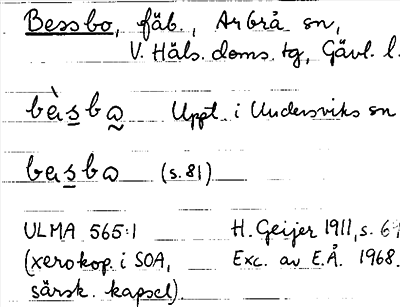 Bessbo, fäb., Arbrå sn,
V. Häls. doms. tg, Gävl. l.
bèsba Uppt. i Undersviks sn
besba (s. 81)
ULMA 565:1 H. Geijer 1911, s. 67
(xerokop. i SOA, Exc. av E.Å. 1968.
särsk. kapsel).